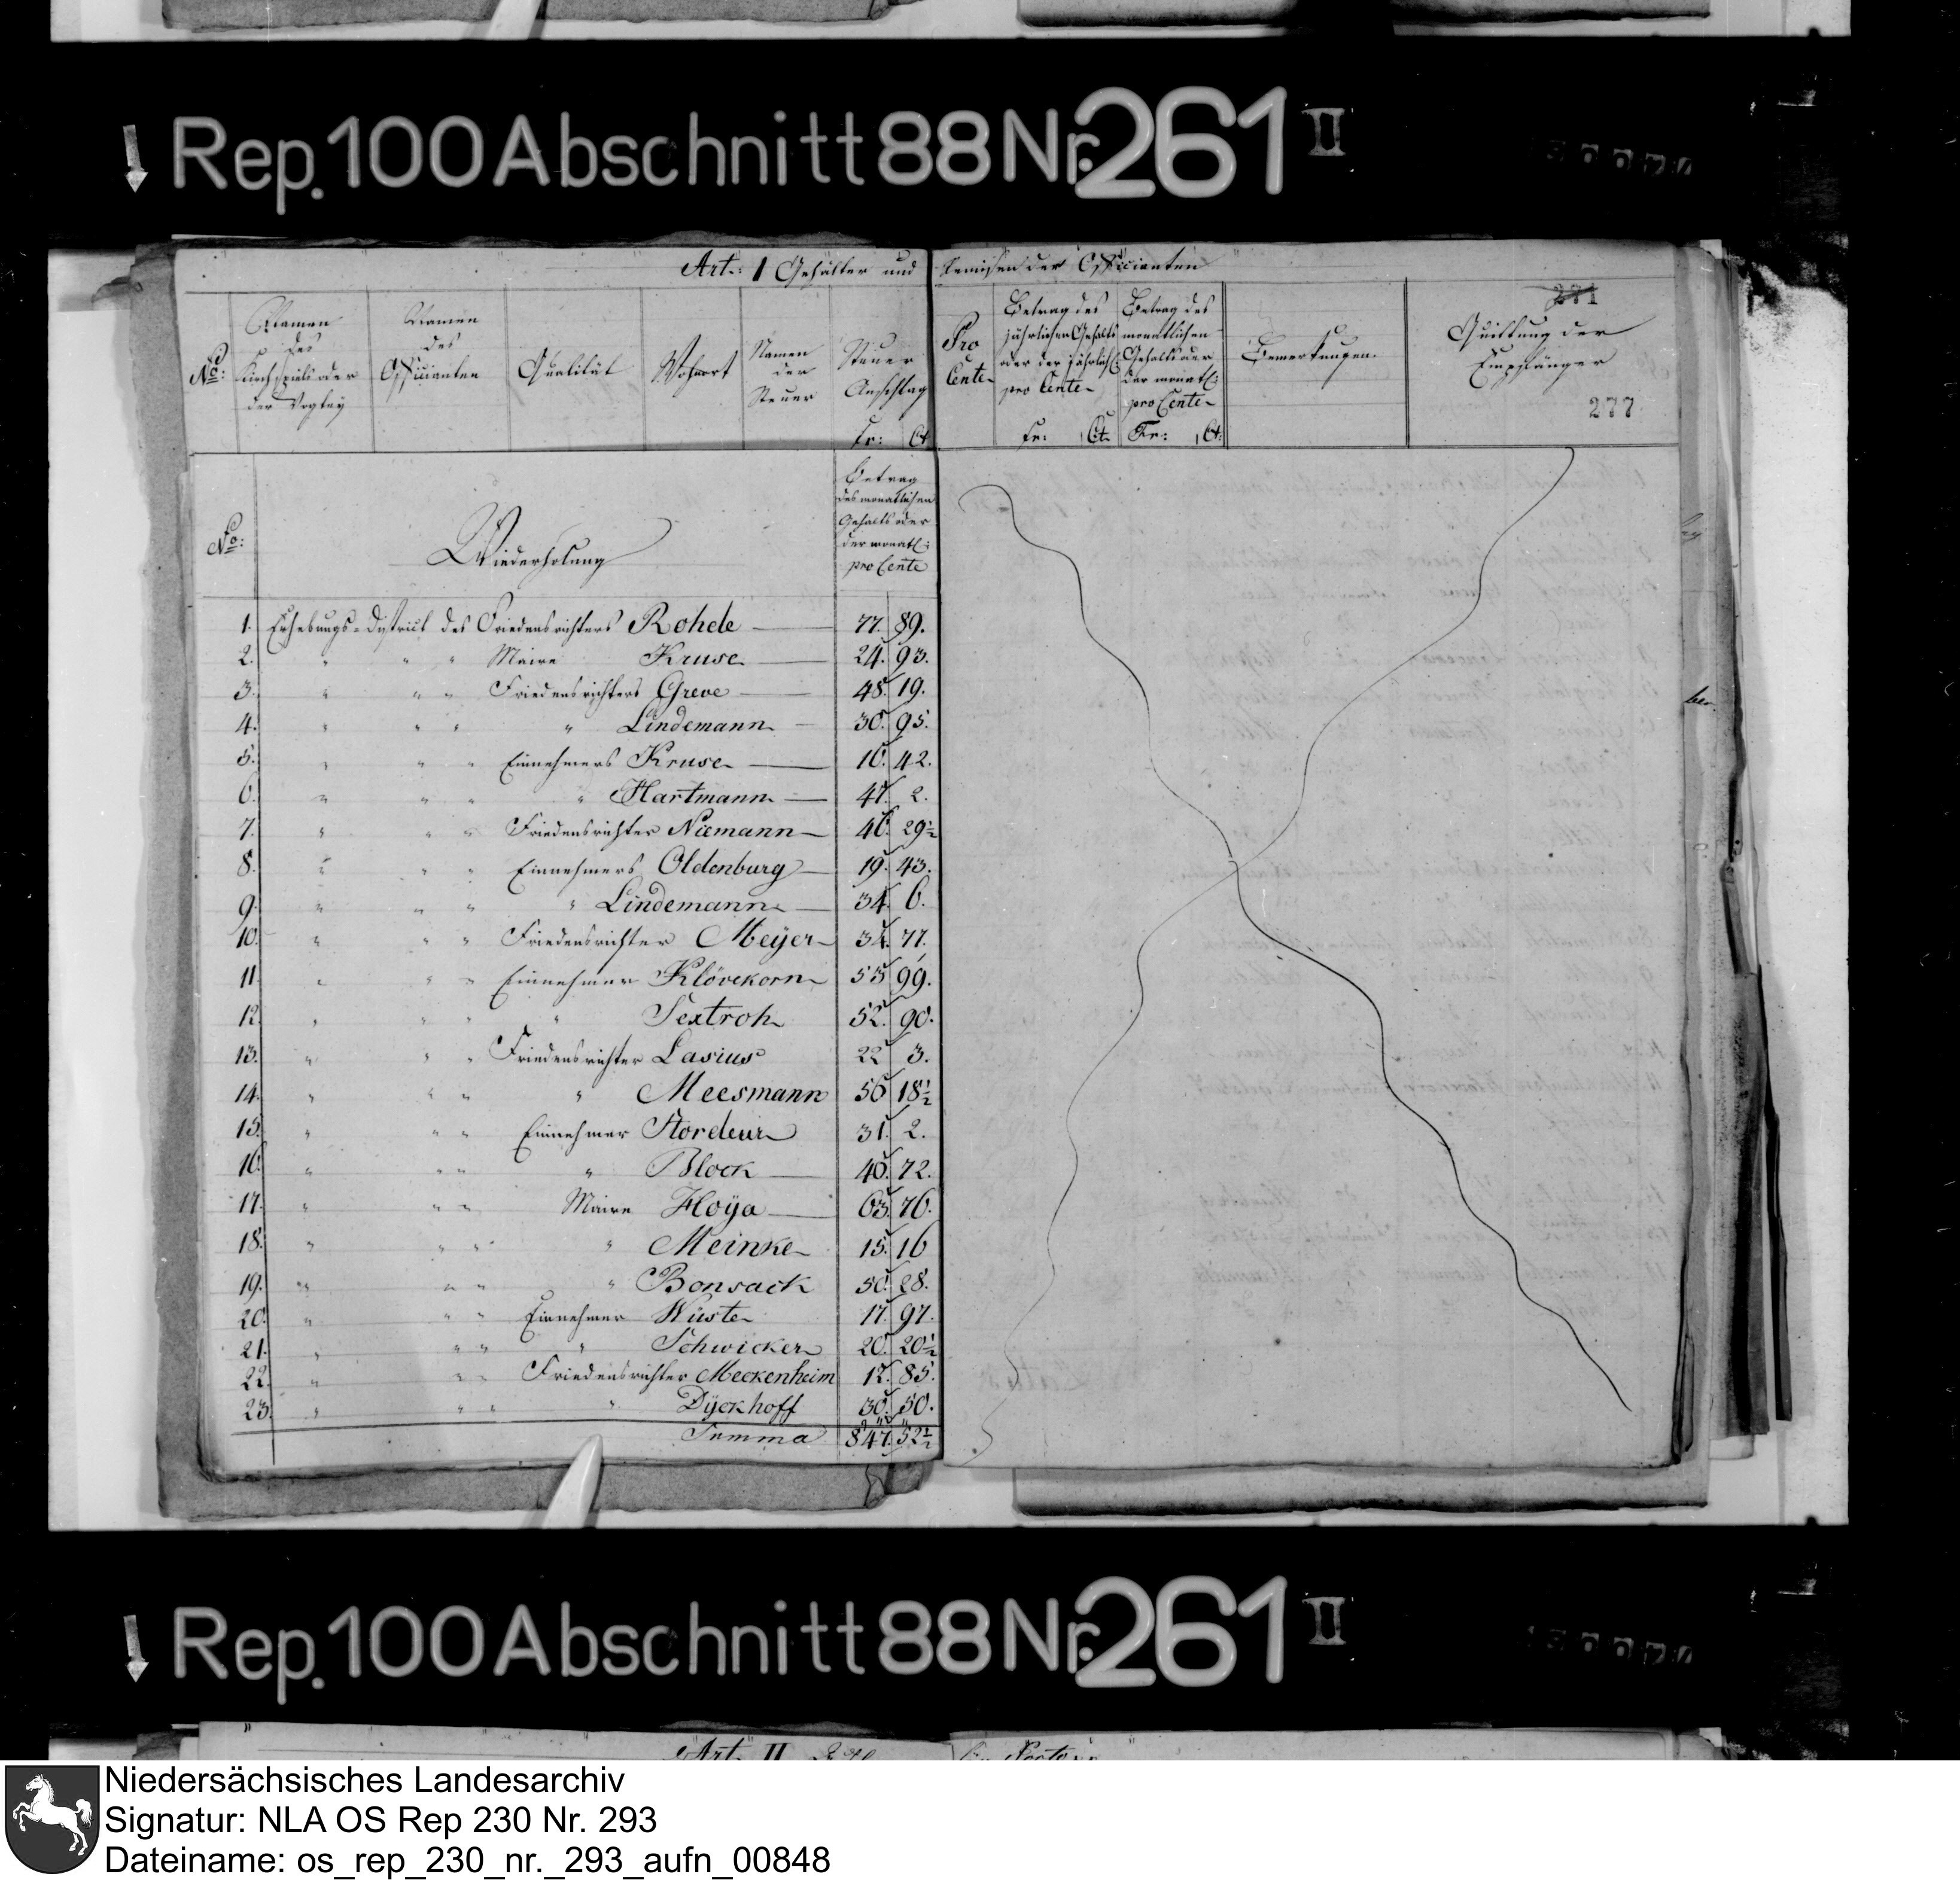 Rep. 100 Abschnitt 88 Nr. 261 II
Art: 1 Gehälter und Remisen der Officianten
No:
Namen des Kirchspiels oder der Vogtey
Namen des Officianten
Qualität
Wohnort
Namen der Steuer
Steuer Anschlag
Fr: Ct
Pro Cente
Betrag des jährlichen Gehalts oder der jährlich: pro Cente
Fr: Ct.
Betrag des monatlichen Gehalts oder der monatl: pro Cente
Fr: Ct:
Bemerkungen.
271
Quittung der Empfänger
277
No:
Wiederholung
Betrag des monatlichen Gehalts oder der monatl: pro Cente
1. Erhebungs-District des Friedensrichters Rohde 77. 89.
2. " " " Maire Kruse 24. 93.
3. " " " Friedensrichters Greve 48. 19.
4. " " " " Lindemann 30. 95.
5. " " " Einnehmers Kruse 16. 42.
6. " " " " Hartmann 47. 2.
7. " " " Friedensrichter Niemann 46. 29½
8. " " " Einnehmers Oldenburg 19. 43.
9. " " " " Lindemann 34. 6.
10. " " " Friedensrichter Meÿer 34. 77.
11. " " " Einnehmer Klövekorn 55 99.
12. " " " " Sextroh 52. 90.
13. " " " Friedensrichter Lasius 22 3.
14. " " " " Meesmann 56 18½
15. " " " Einnehmer Stordeur 31. 2.
16. " " " " Block 46. 72.
17. " " " Maire Hoÿa 63. 76.
18. " " " " Meinke 15. 16
19. " " " " Bonsack 50. 28.
20. " " " Einnehmer Wüste 17. 97.
21. " " " " Schwicker 20. 20½
22. " " " Friedensrichter Meckenheim 12. 85.
23. " " " " Dÿckhoff 30. 50.
Summa 847. 52½
Rep. 100 Abschnitt 88 Nr. 261 II
Art. II
Niedersächsisches Landesarchiv
Signatur: NLA OS Rep 230 Nr. 293
Dateiname: os_rep_230_nr._293_aufn_00848